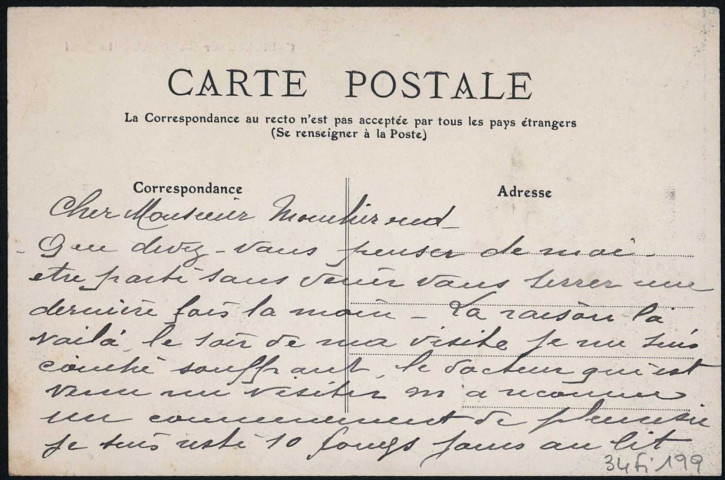 CARTE POSTALE
La Correspondance au recto n'est pas acceptée par tous les pays étrangers
(Se renseigner à la Poste)
Correspondance
Adresse
Cher Monsieur
Que devez-vous penser de moi
etre parti sans venir vous serrer une
dernière fois la main - La raison la
voilà, le soir de ma visite je me suis
couché souffrant, le docteur qui est
venu me visiter m'a reconnu
un commencement de pleuresie
je suis resté 10 longs jours au lit
34 Fi 199